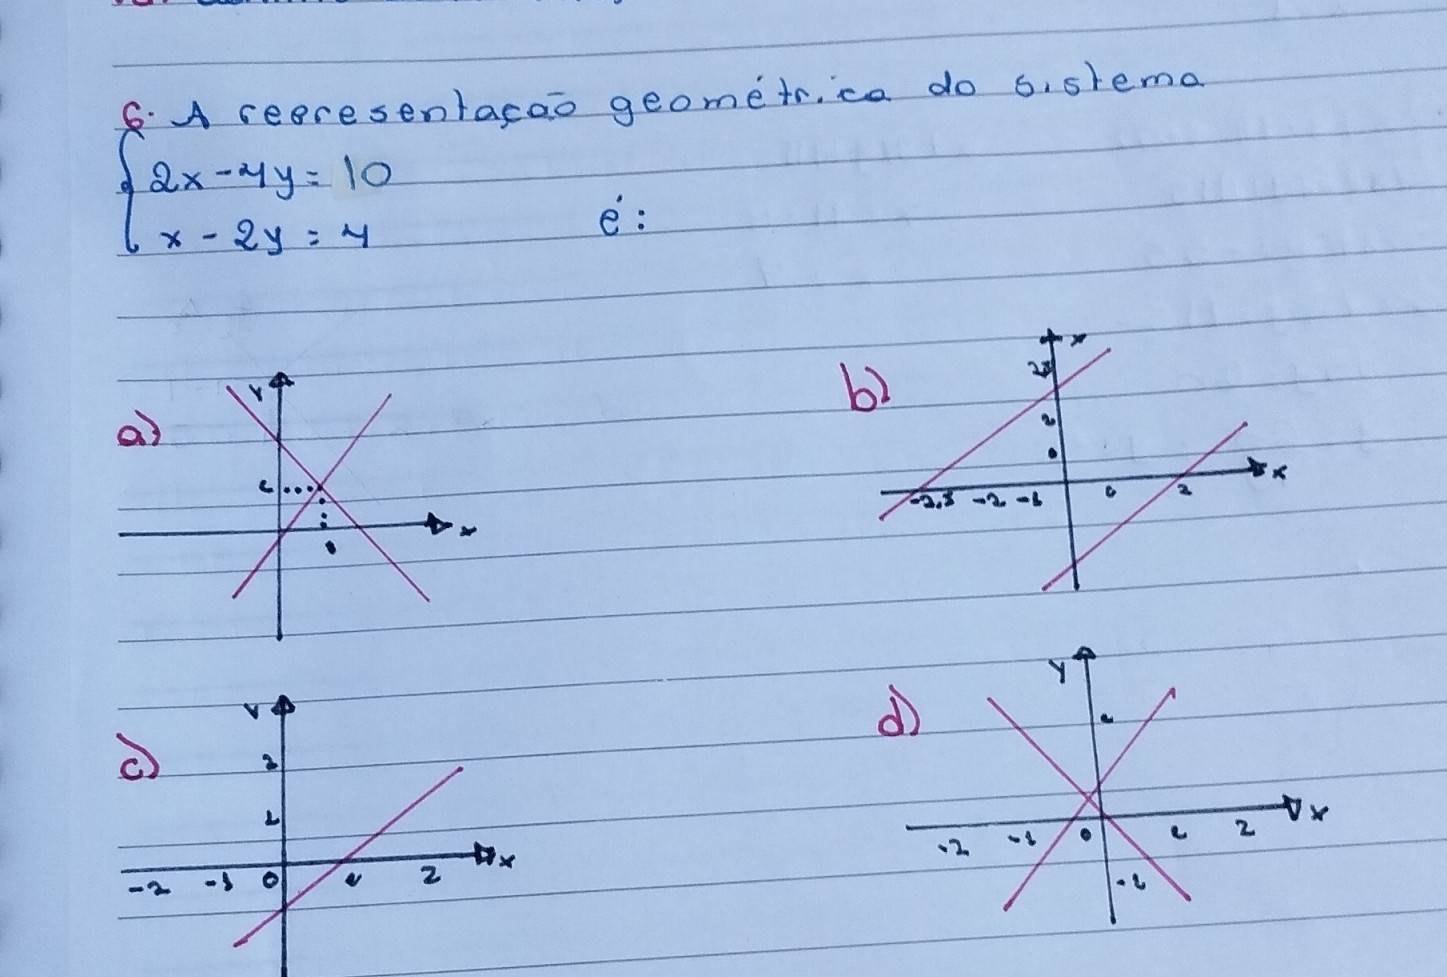 6. A representação geométrica do sistema
2x-4y=10
x-2y=4 é:
a) y
1
x
b) x
2,5
2
-2,5 -2 -1 2 x
c) y
2
1
-2 -1 0 1 2 x
d) y
-2 -1 0 1 2 x
-1